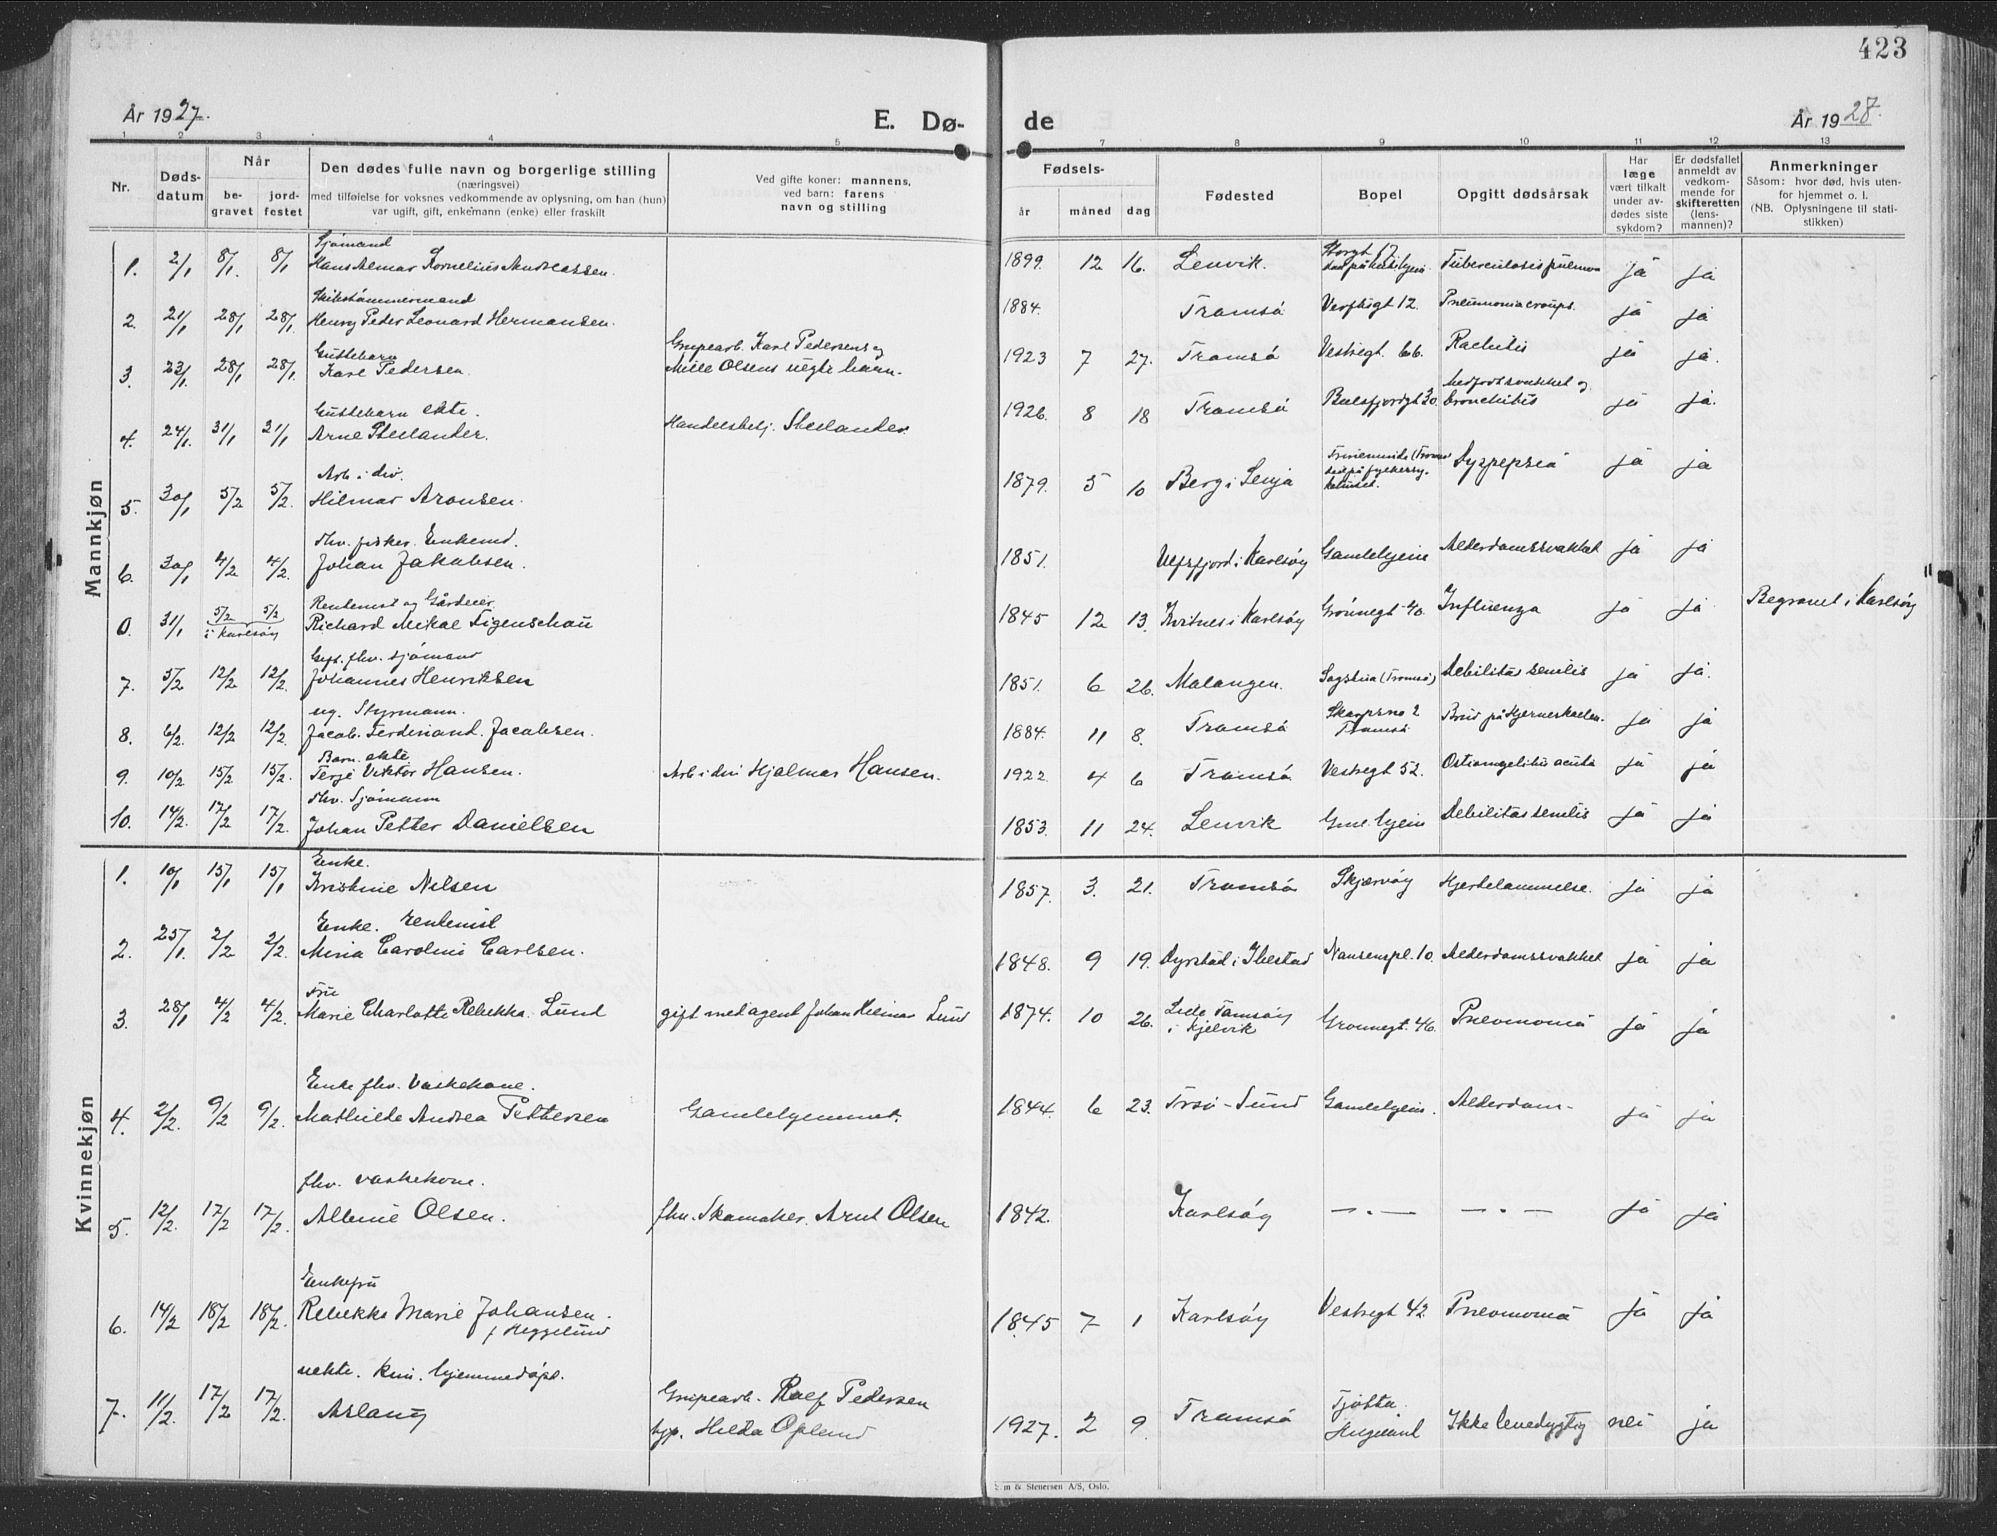 423
År 1927.
E. Dø-
de
År 1928.
1 2 3 4 5 7 8 9 10 11 12 13
Nr.
Døds-
datum
Når
be-
gravet
jord-
festet
Den dødes fulle navn og borgerlige stilling
(næringsvei)
med tilføielse for voksnes vedkommende av oplysning, om han (hun)
var ugift, gift, enkemann (enke) eller fraskilt
Ved gifte koner: mannens,
ved barn: farens
navn og stilling
Fødsels-
år
måned
dag
Fødested
Bopel
Opgitt dødsårsak
Har
læge
vært tilkalt
under av-
dødes siste
sykdom?
Er dødsfallet
anmeldt av
vedkom-
mende for
skifteretten
(lens-
mannen)?
Anmerkninger
Såsom: hvor død, hvis uten-
for hjemmet o. l.
(NB. Oplysningene til stati-
stikken)
Mannkjøn
Sjømand
1. 2/1 8/1. 8/1 Hans Almar Kornelius Andreassen. 1899. 12 16. Lenvik. Storgt 17 Tuberculosis pulmon ja ja
2. 21/1 28/1 28/1. Henry Peder Leonard Hermansen. 1884. Tromsø Verftsgt 12. Pneumonia croups. ja ja
Karl Pedersens og
3. 23/1. 28/1 28/1. Karl Pedersen. Olsens uegte barn. 1923 7 27. Tromsø Vestregt. 66. Rachitis ja ja.
ekte.
4. 24/1. 31/1 31/1 Arne 1926. 8 18 Tromsø bronchitis ja ja.
Arb. i div.
5. 30/1 5/2 5/2. Hilmar Aronsen. 1879. 5 10 Berg i Senja Dyspepsia ja ja
fhv. fisker. Enkemd.
6. 30/1 4/2 4/2. Johan Jakobsen. 1851. Ulfsfjord i Karlsøy Gamlehjem Alderdomssvakhet ja ja
Rentenist og Gårdeier
0. 31/1 5/2 5/2 i Karlsøy Richard Mikal Figenschau 1845 12 13. Kvitnes i Karlsøy Grønnegt 40. Influenza ja ja Begravet i Karlsøy
fhv. sjømand
7. 5/2 12/2 12/2. Johannes Henriksen 1851. 6 26. Malangen. (Tromsø) Debilitas senilis ja ja.
ug. Styrmann.
8. 6/2. 12/2 12/2. Jacob. Ferdinand. Jacobsen. 1884. 11 8. Tromsø Tromsø ja ja
Barn. ekte
9. 10/2 15/2 15/2. Terje Viktor Hansen. Arb i div Hjalmar Hansen. 1922 4 6 Tromsø Vestregt 52. acuta ja ja
fhv. Sjømann
10. 14/2. 17/2 17/2. Johan Petter Danielsen 1853. 11 24. Lenvik Gml. hjem Debilitas senilis ja ja
Kvinnekjøn
Enke.
1. 10/1 15/1 15/1 Kristine Nilsen 1857. 3. 21. Tromsø Skjærvøy Hjertelammelse. ja ja
Enke. rentenist
2. 25/1. 2/2 2/2. Caroline Carlsen. 1848. 9 19. Dyrstad i Ibestad Nansenspl. 10. Alderdomssvakhet ja ja
Fru
3. 28/1 4/2 4/2. Marie Charlotte Rebekka. Lund gift med agent Johan Hilmar Lund 1874. 10 26. Lille Tamsøy i Kjelvik Grønnegt. 46. Pnevmonia ja ja
Enke fhv. Vaskekone.
4. 2/2. 9/2 9/2. Mathilde Andrea Pettersen Gamlehjemmet. 1844. 6 23. Trsø-Sund Gamlehjem. Alderdom- ja ja
fhv. vaskekone.
5. 12/2. 17/2 17/2. Albine Olsen. fhv. Skomaker. Arnt Olsen 1842. Karlsøy —„— —„— ja ja
Enkefru
6. 14/2 18/2 18/2. Rebekka Marie Johansen. 1845 7 1 Karlsøy Vestregt 42 Pnevmonia ja ja
f. Heggelund
uekte. hjemmedøpt.
7. 11/2. 17/2 17/2. Aslaug Rolf Pedersen 1927. 2 9. Tromsø Tjøtta Helgeland Ikke levedygtig nei ja
Hilda
& Stenersen A/S, Oslo.